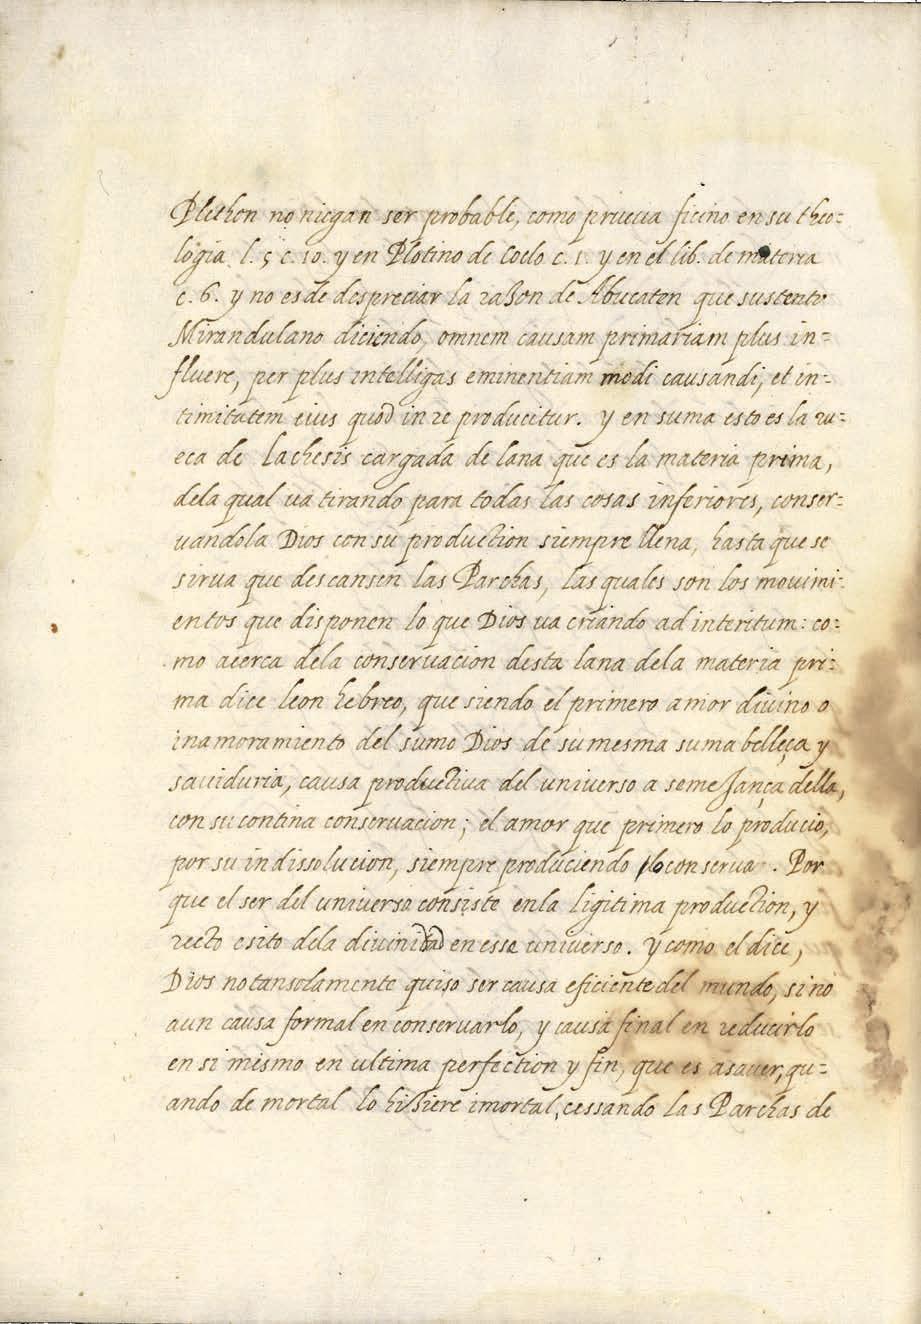 Plethon no niegan ser probable, como prueua ficino en su theo=
logia l. 5 c. 10. y en Plotino de Coelo c. 1. y en el lib. de materia
c. 6. y no es de despreciar la razon de Abucaten que sustento
Mirandulano diciendo, omnem causam primariam plus in=
fluere, per plus intelligas eminentiam modi causandi, et in=
timitatem eius quod in re producitur. y en suma esto es la ru=
eca de Lachesis cargada de lana que es la materia prima,
dela qual ua tirando para todas las cosas inferiores, conser=
uandola Dios con su production siempre llena, hasta que se
sirua que descansen las Parchas, las quales son los mouimi=
entos que disponen lo que Dios ua criando ad interitum: co=
mo acerca dela conseruacion desta lana dela materia pri=
ma dice leon hebreo, que siendo el primero amor diuino o
inamoramiento del sumo Dios de su mesma suma belleça y
sauiduria, causa productiua del uniuerso a semejança della,
con su contina conseruacion; el amor que primero lo producio,
por su indissolucion, siempre produciendo lo conserua. Por
que el ser del uniuerso consiste en la ligitima production, y
recto esito dela diuinidad en esse uniuerso. y como el dice,
Dios no tan solamente quiso ser causa eficiente del mundo, sino
aun causa formal en conseruarlo, y causa final en reducirlo
en si mismo en ultima perfection y fin, que es asauer, qu=
ando de mortal lo hiziere imortal, cessando las Parchas de